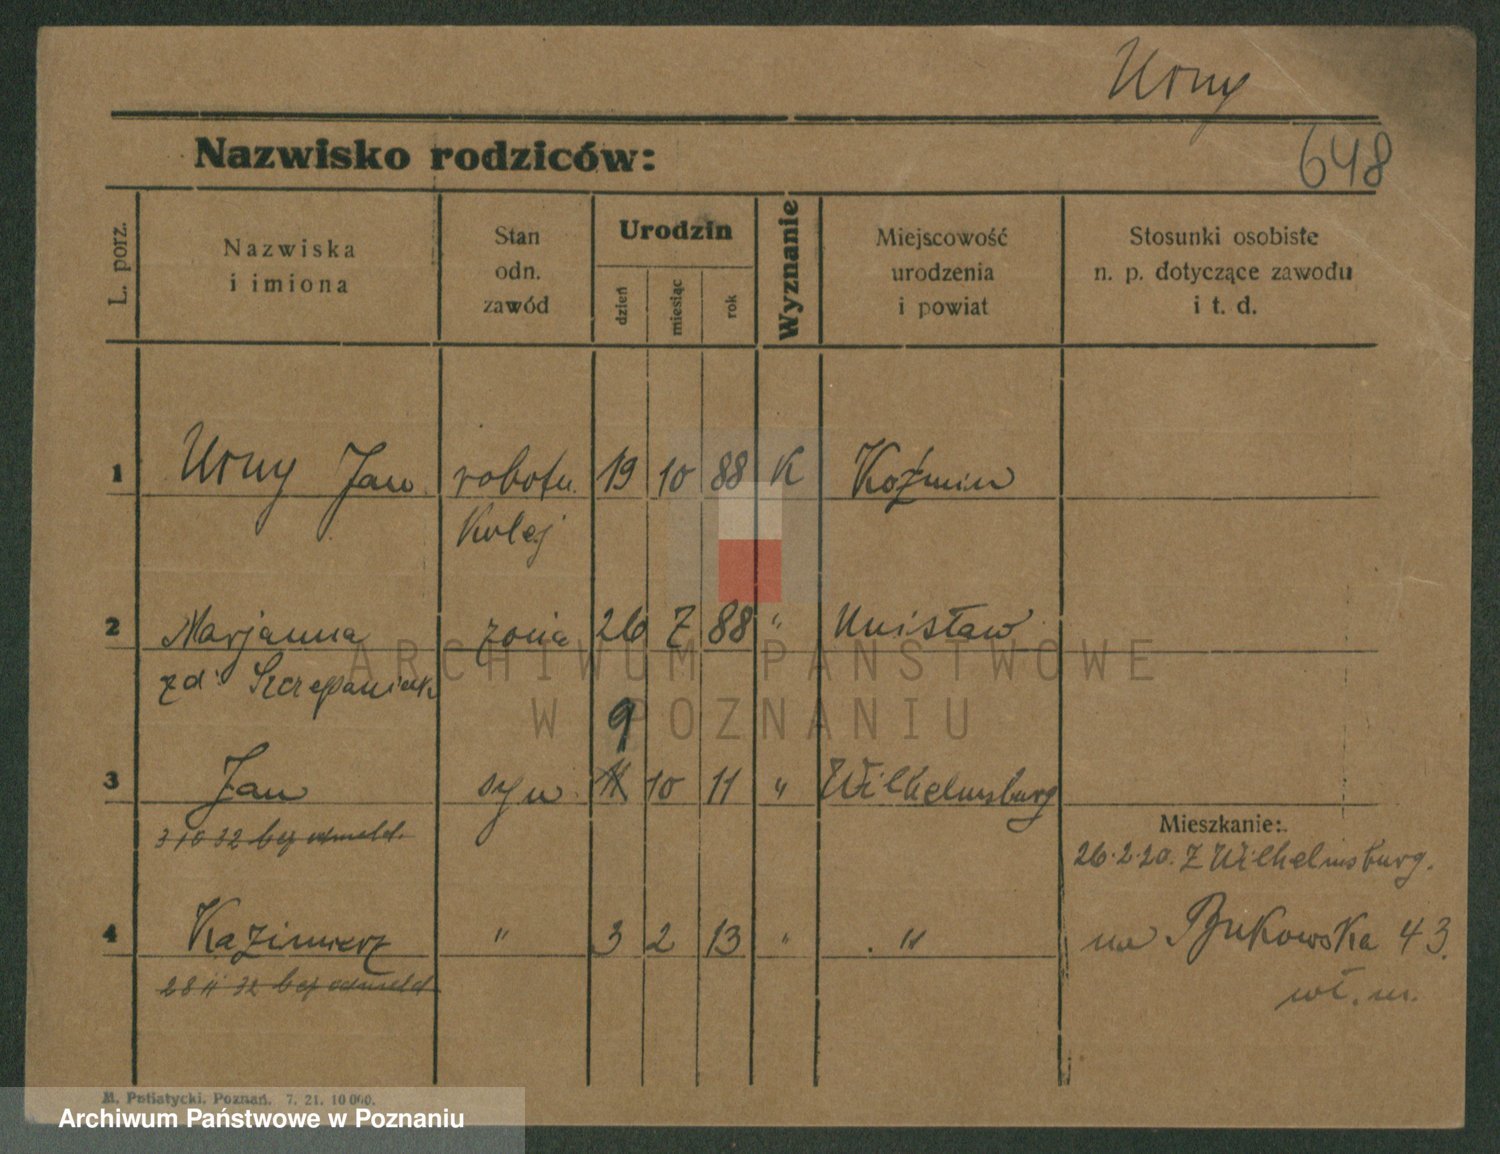 Urny
648
Nazwisko rodziców:
L. porz.
Nazwiska
i imiona
Stan
odn.
zawód
Urodzin
dzień
miesiąc
rok
Wyznanie
Miejscowość
urodzenia
i powiat
Stosunki osobiste
n. p. dotyczące zawodu
i t. d.
1 Urny Jan robotn. 19 10 88 K Koźmin
Kolej
2 Marjanna żona 26 7 88 " Unisław
zd. Szczepaniak
9
3 Jan syn 10 11 " Wilhelmsburg
3 10 32 bez odmeld.
Mieszkanie:
26.2.20. z Wilhelmsburg.
4 Kazimierz " 3 2 13 " "
na Bukowska 43.
28 11 32 bez odmeld
wł. m.
M. Putiatycki. Poznań. 7. 21. 10 000.
ARCHIWUM PAŃSTWOWE
W POZNANIU
Archiwum Państwowe w Poznaniu